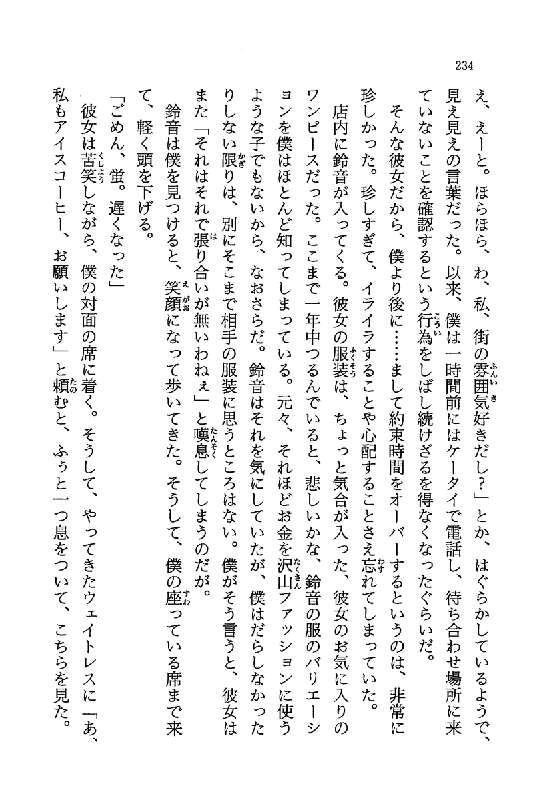 234
え、えーと。ほらほら、わ、私、街の雰囲気好きだし？」とか、はぐらかしているようで、
見え見えの言葉だった。以来、僕は一時間前にはケータイで電話し、待ち合わせ場所に来
ていないことを確認するという行為をしばし続けざるを得なくなったぐらいだ。
そんな彼女だから、僕より後に……まして約束時間をオーバーするというのは、非常に
珍しかった。珍しすぎて、イライラすることや心配することさえ忘れてしまっていた。
店内に鈴音が入ってくる。彼女の服装は、ちょっと気合が入った、彼女のお気に入りの
ワンピースだった。ここまで一年中つるんでいると、悲しいかな、鈴音の服のバリエーシ
ョンを僕はほとんど知ってしまっている。元々、それほどお金を沢山ファッションに使う
ような子でもないから、なおさらだ。鈴音はそれを気にしていたが、僕はだらしなかった
りしない限りは、別にそこまで相手の服装に思うところはない。僕がそう言うと、彼女は
また「それはそれで張り合いが無いわねぇ」と嘆息してしまうのだが。
鈴音は僕を見つけると、笑顔になって歩いてきた。そうして、僕の座っている席まで来
て、軽く頭を下げる。
「ごめん、蛍。遅くなった」
彼女は苦笑しながら、僕の対面の席に着く。そうして、やってきたウェイトレスに「あ、
私もアイスコーヒー、お願いします」と頼むと、ふぅと一つ息をついて、こちらを見た。